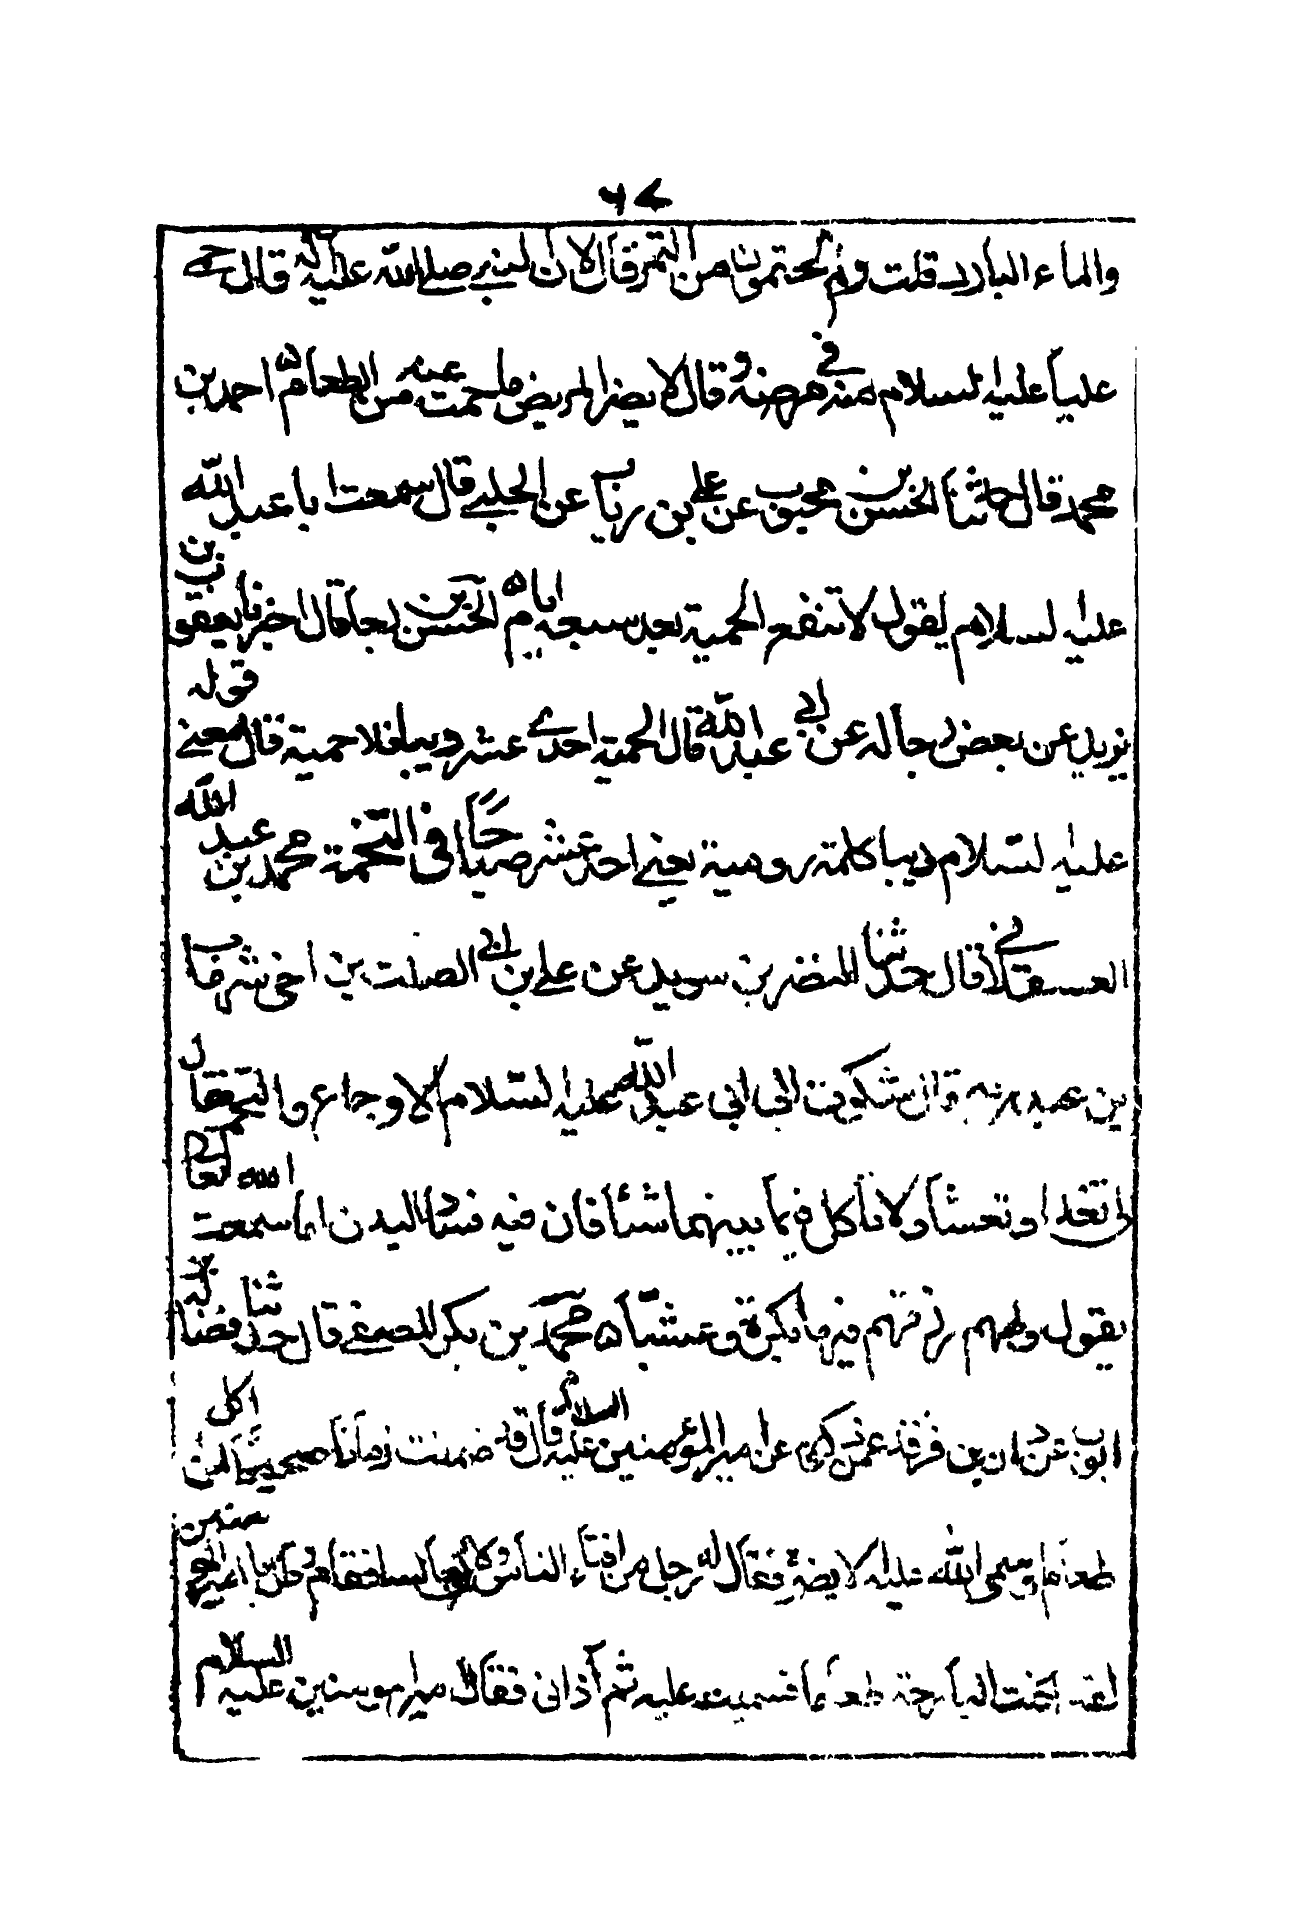 ٦٧
والماء البارد قلت ولم تحتمون من التمر قال لان النبي صلى الله عليه وآله قال حمى
علياً عليه السلام منه في مرضه وقال لا يضر المريض ما حميت عنه من الطعام ۵ احمد بن
محمد قال حدثنا الحسن بن محبوب عن علي بن رياب عن الحلبي قال سمعت ابا عبد الله
عليه السلام يقول لا تنفع الحمية بعد سبعة ايام ۵ الحسن بن رجا قال اخبرنا يعقوب بن
يزيد عن بعض رجاله عن ابي عبد الله قال الحمية احدى عشر دينا فلا حمية قال معنى قوله
عليه السلام دينا كلمة رومية يعني احد عشر صباحاً في التخمة محمد بن عبد الله
العسقلاني قال حدثنا النضر بن سويد عن علي بن ابي الصلت بن اخي شهاب
بن عبد ربه قال شكوت الى ابي عبد الله عليه السلام الاوجاع والتخم فقال
لي تغد وتعش ولا تاكل فيما بينهما شيئاً فان فيه فساد البدن اما سمعت الله تعالى
يقول ولهم رزقهم فيها بكرة وعشياً ۵ محمد بن بكر الصيفي قال حدثنا فضالة بن
ايوب عن داود بن فرقد عمن ذكره عن امير المؤمنين عليه السلام قال قد ضمنت زماناً صحيحاً لمن اكل
طعاماً وسمى الله عليه لا يضره فقال له رجل من افناء الناس يا امير المومنين
لقد اكلت البارحة طعاماً فسميت عليه ثم آذاني فقال امير المومنين عليه السلام